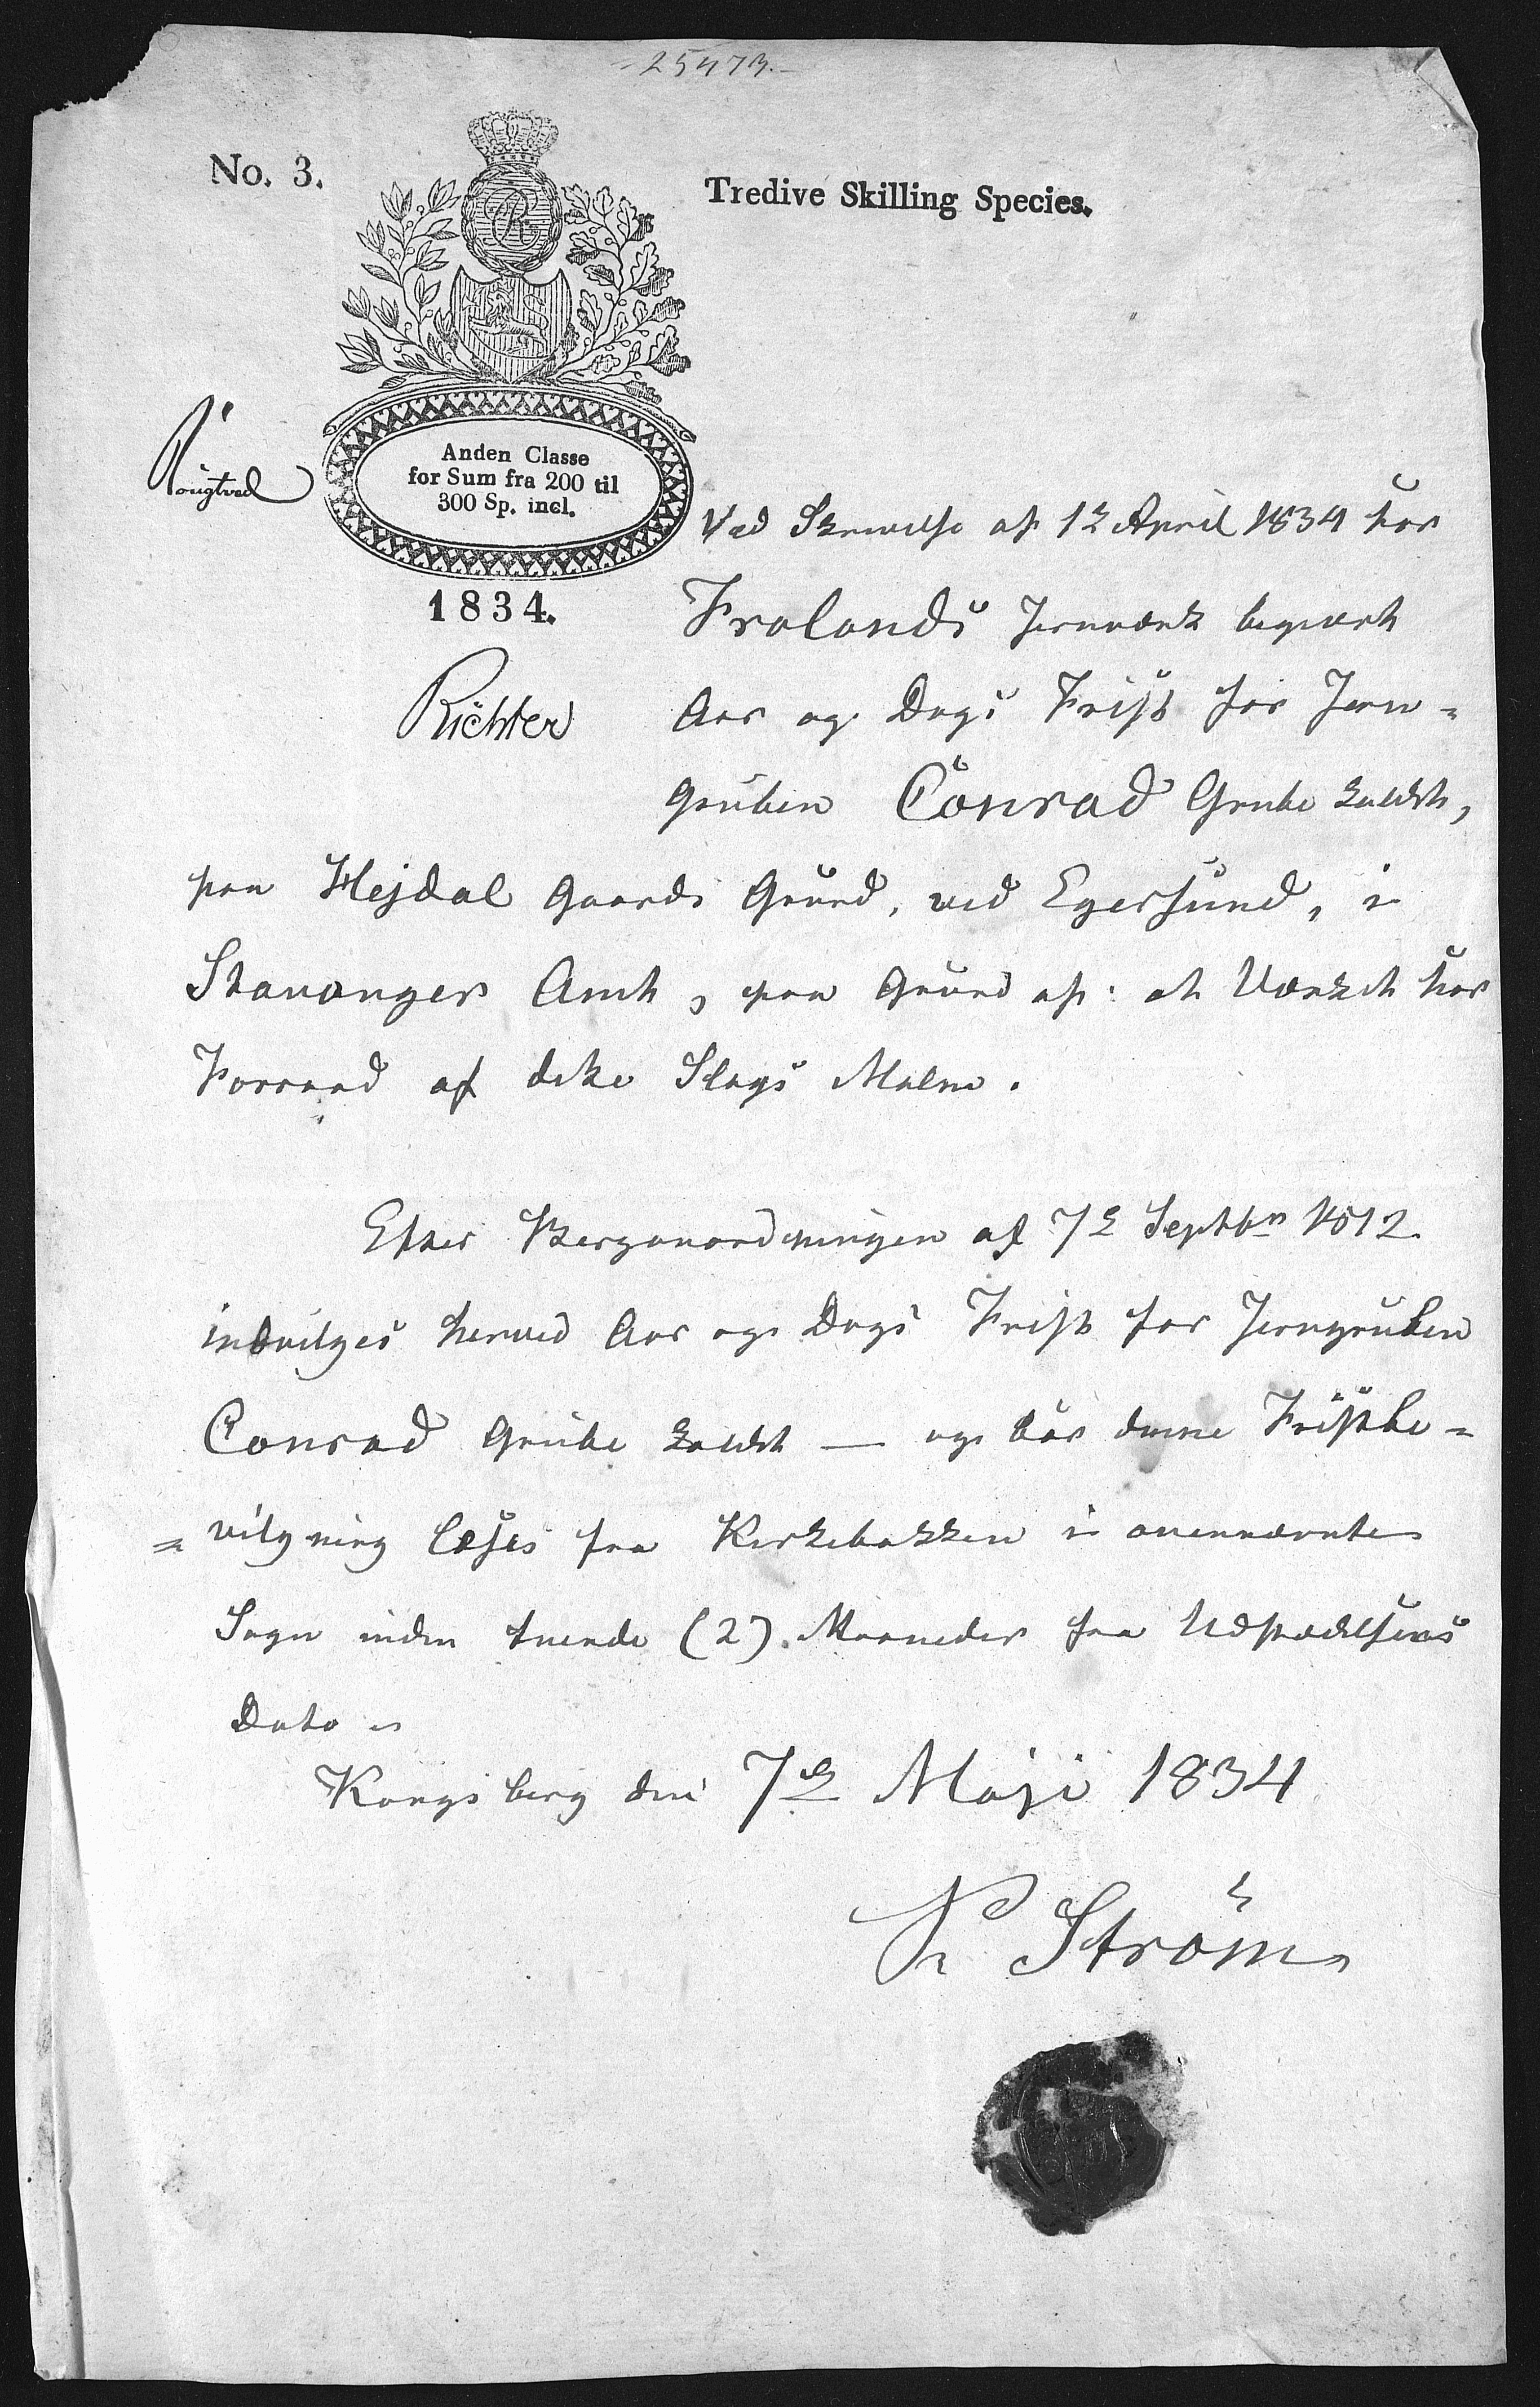 25473.
No. 3.
Tredive Skilling Species.
Anden Classe
for Sum fra 200 til
300 Sp. incl.
1834.
Rougtved
Richter
Ved Skrivelse af 12 April 1834 har
Frolands Jernværk begjært
Aar og Dags Frist for Jern-
Gruben Conrad Grube kaldet,
paa Hejdal Gaards Grund, ved Egersund, i
Stavanger Amt, paa Grund af: at Værket har
Forraad af dette Slags Malm.
Efter Berganordningen af 7de Septbr 1812
indvilges herved Aar og Dags Frist for Jerngruben
Conrad Grube kaldet — og bør denne Fristbe-
-vilgning læses fra Kirkebakken i ovennævnte
Sogn inden tvende (2) Maaneder fra Udstædelsens
Dato
Kongsberg den 7de Maji 1834
Ström